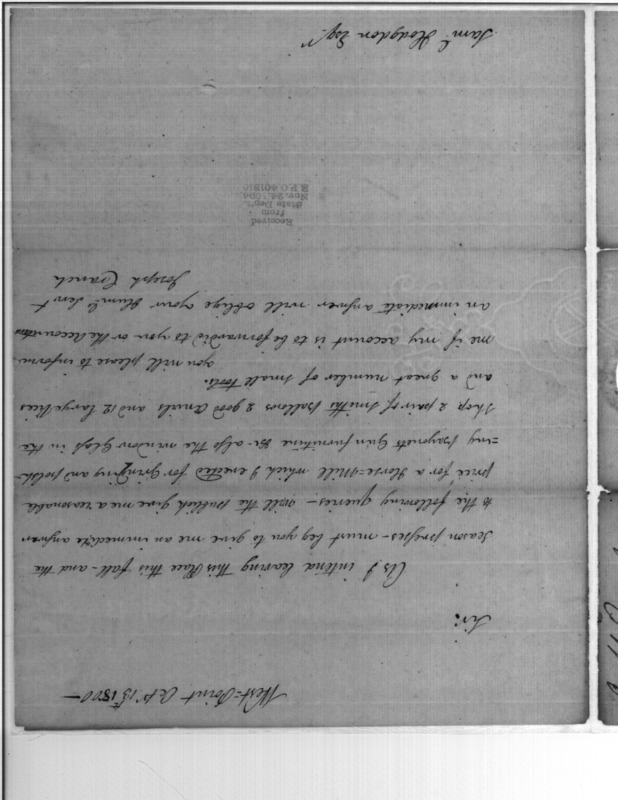 West=Point 15th 1800 —
Sir:
As I intend leaving this Place this fall – and the
season presses – must beg you to give me an immediate answer
to the following queries – will the publick give me a reasonable
price for a Horse=Mill which I erected for grinding and polish
=ing bayonets Gun furniture &c – also the window glass in the
shop 2 pair of Smiths Ballows 2 good Anvils and 12 large Vices
and a great number of small tools.
you will please to inform
me if my account is to be forwarded to you or the Accountant
an immediate answer will oblige your Humle Servt
Joseph Cranch
Received
from
State Dep't.
Nov. 24, 1894
R.P.O. 401810
Saml Hodgdon Esqr